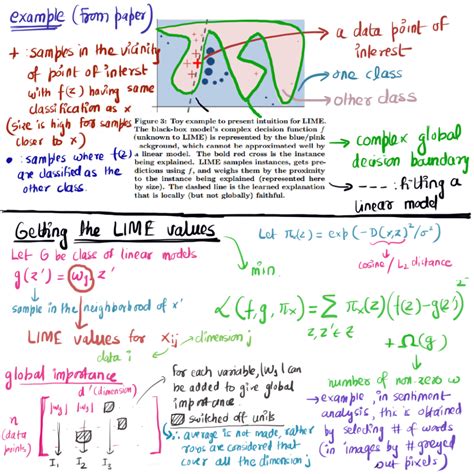 example (from paper)
+ : samples in the vicinity
of point of interst
with f(z) having same
classification as x
(size is high for samples
closer to x)
• : samples where f(z)
are classified as the
other class.
Figure 3: Toy example to present intuition for LIME.
The black-box model's complex decision function f
(unknown to LIME) is represented by the blue/pink
ackground, which cannot be approximated well by
a linear model. The bold red cross is the instance
being explained. LIME samples instances, gets pre-
dictions using f, and weighs them by the proximity
to the instance being explained (represented here
by size). The dashed line is the learned explanation
that is locally (but not globally) faithful.
a data point of
interest
one class
other class
complex global
decision boundary
--- : fitting a
linear model
Getting the LIME values
Let G be class of linear models
g(z') = w₁ z'
sample in the neighborhood of x'
LIME values for xij
dimension j
data i
min
Let πₓ(z) = exp(-D(x,z)²/σ²)
cosine / L₂ distance
ℒ(f,g,πₓ) = Σ πₓ(z)(f(z)-g(z'))²
z,z'∈Z
+ Ω(g)
number of non-zero w
example, in sentiment
analysis, this is obtained
by selecting # of words
(in images by # greyed
out pixels)
global importance
d' (dimension)
n
(data
points)
|w₁| |w₂|
I₁ I₂ I₃
For each variable, |w₁| can
be added to give global
importance.
switched off units
∴ average is not made, rather
rows are considered that
cover all the dimension j